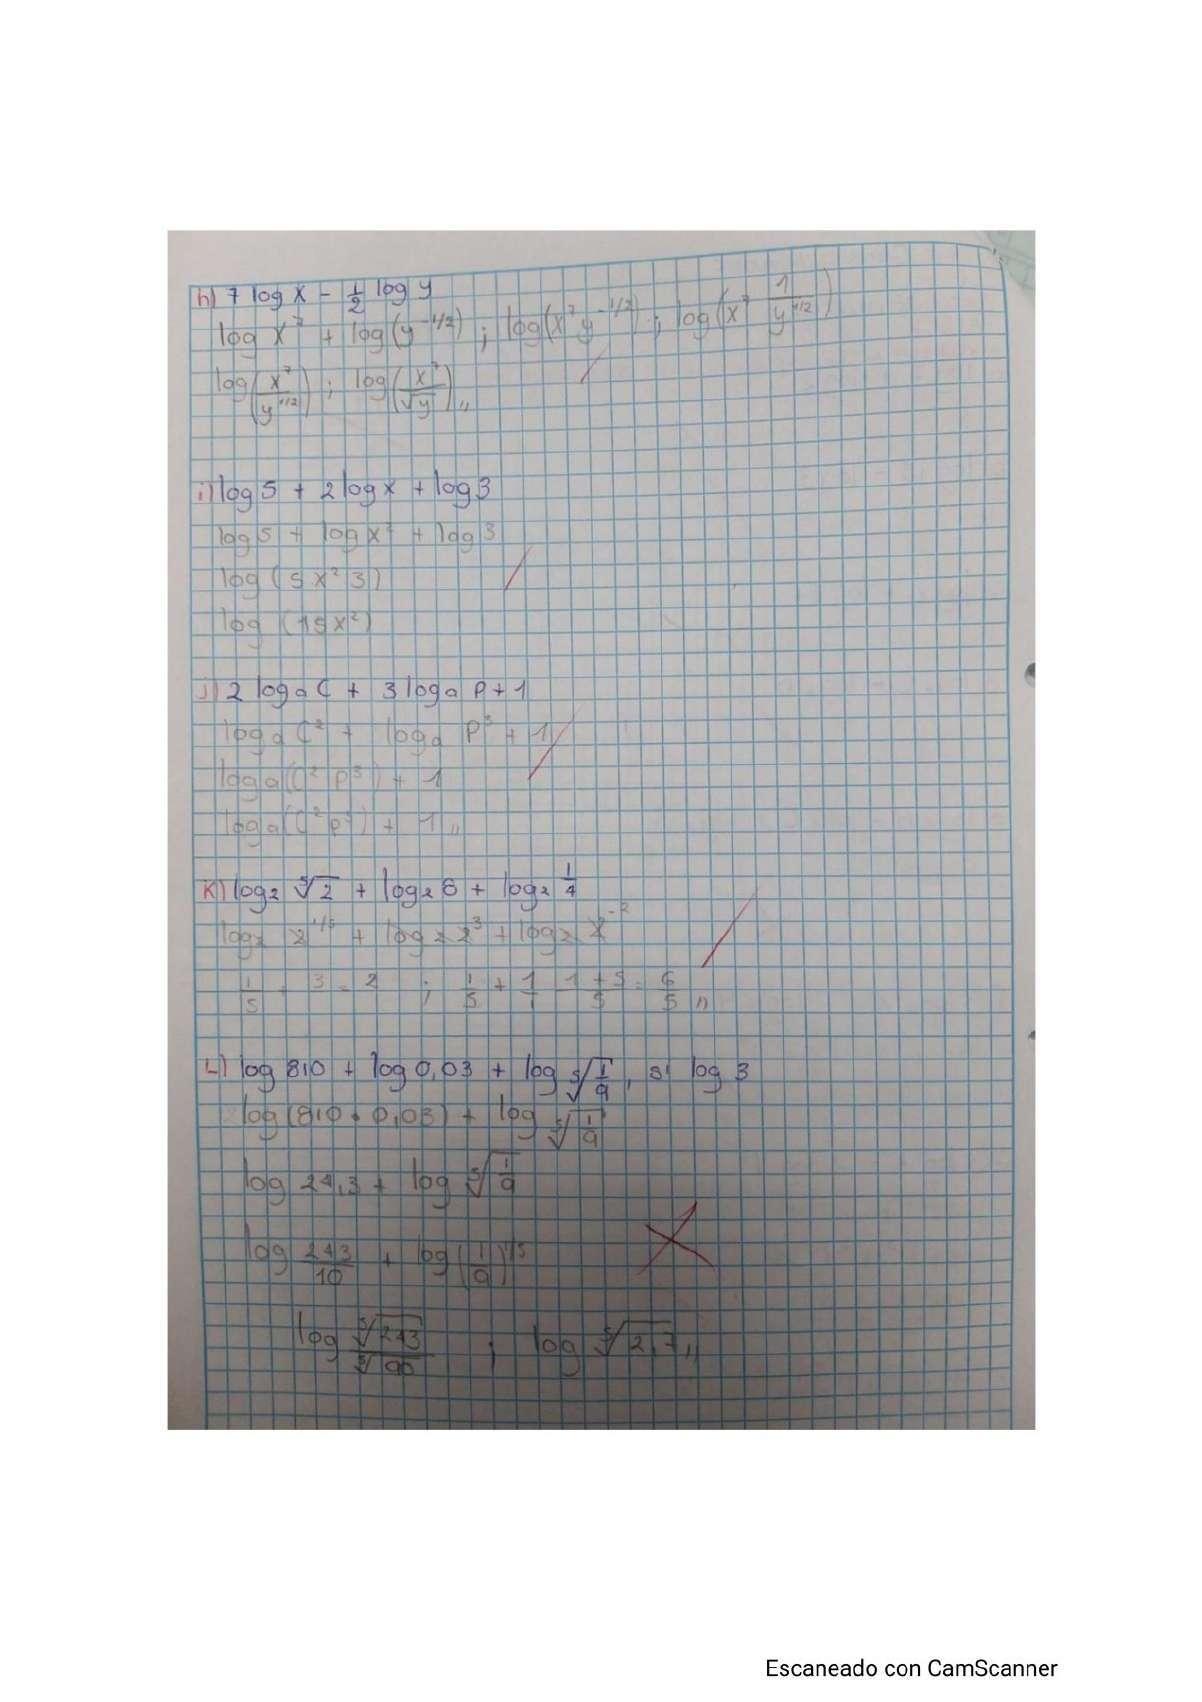 h) 7 log x - 1/2 log y
log x^7 + log(y^-1/2) ; log(x^7 y^-1/2) ; log(x^7 1/y^1/2)
log(x^7/y^1/2) ; log(x^7/√y) ,,
i) log 5 + 2 log x + log 3
log 5 + log x^2 + log 3
log (5 x^2 3)
log (15x^2)
J) 2 log a C + 3 log a P + 1
log a C^2 + log a P^3 + 1
log a (C^2 P^3) + 1
log a (C^2 P^3) + 1 ,,
K) log2 ⁵√2 + log2 8 + log2 1/4
log2 2^1/5 + log2 2^3 + log2 2^-2
1/5 + 3 - 2 ; 1/5 + 1/1 1+5/5 = 6/5 ,,
L) log 810 + log 0,03 + log ⁵√1/9 , si log 3
log (810 • 0,03) + log ⁵√1/9
log 24,3 + log ⁵√1/9
log 243/10 + log (1/9)^1/5
log ⁵√243/⁵√90 ; log ⁵√2,7 ,,
Escaneado con CamScanner